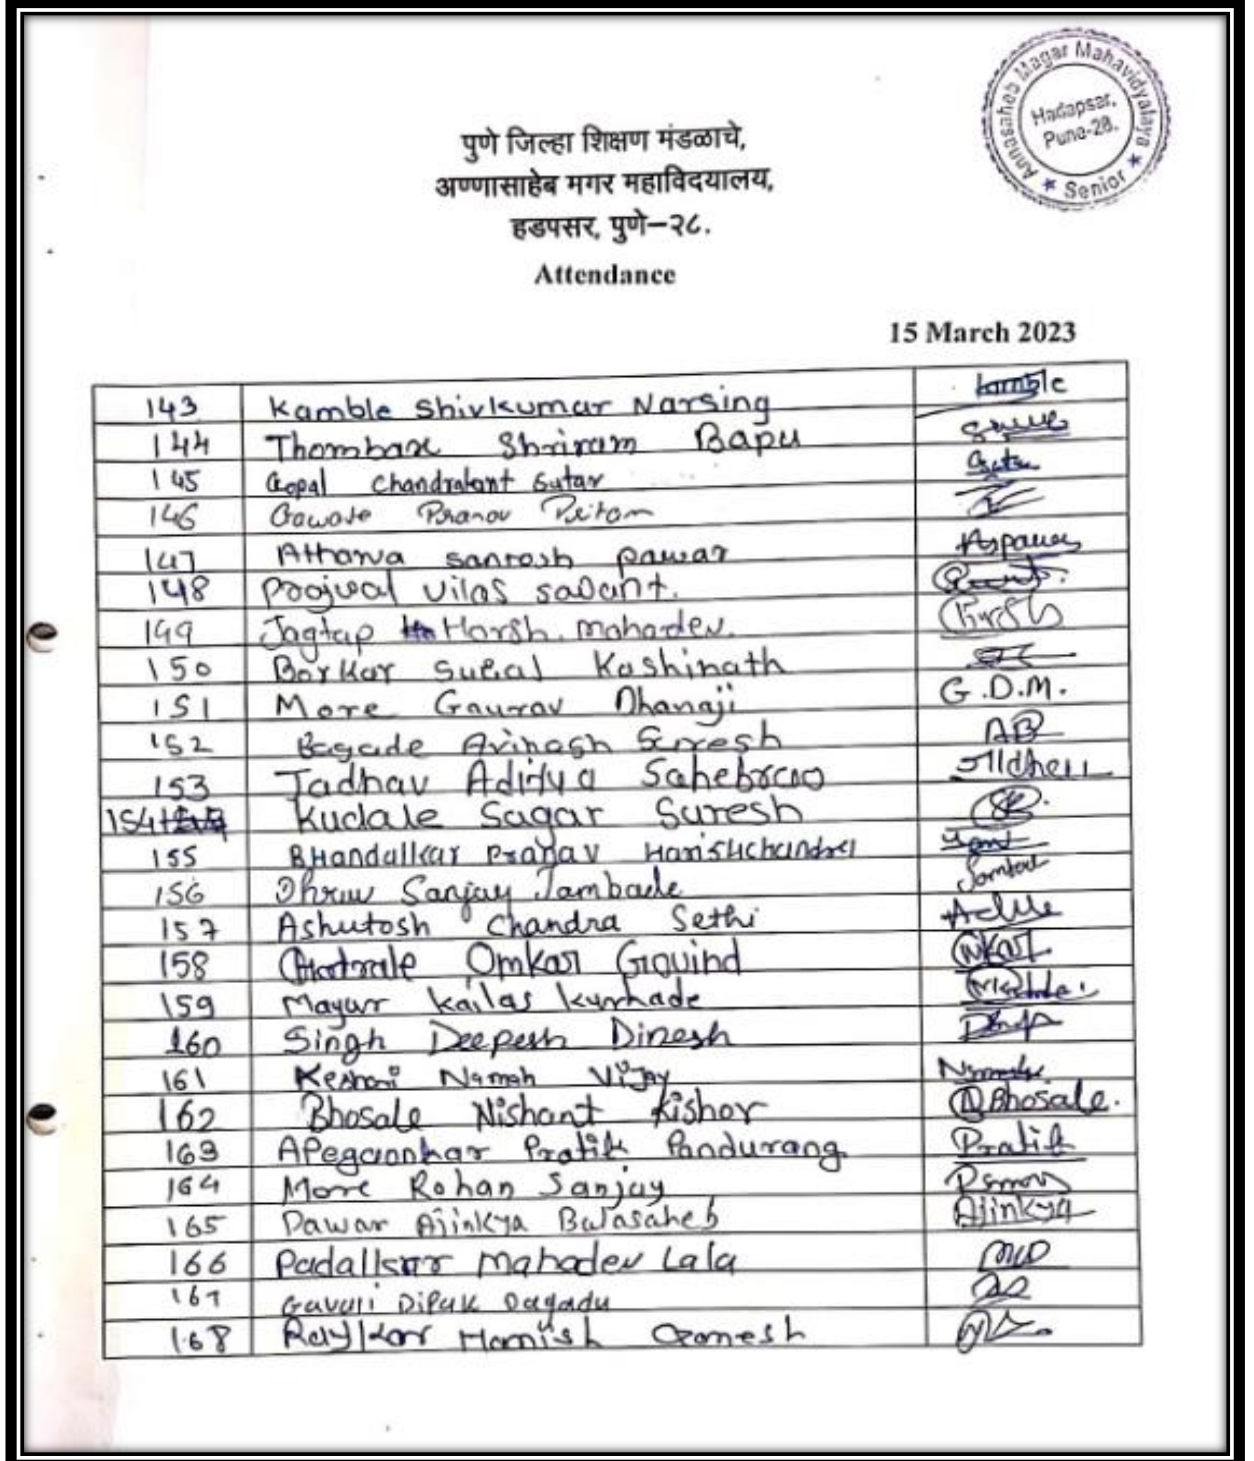 Annasaheb Magar Mahavidyalaya
Hadapsar,
Pune-28.
★ Senior ★
पुणे जिल्हा शिक्षण मंडळाचे,
अण्णासाहेब मगर महाविदयालय,
हडपसर, पुणे–२८.
Attendance
15 March 2023
143 Kamble Shivkumar Narsing Kamble
144 Thombare Shriram Bapu
145 Gopal Chandrakant Sutar
146 Gawate Pranav Pritam
147 Atharva Santosh Pawar Aspawar
148 Prajwal Vilas Savant.
149 Jagtap Harsh. Mahadev.
150 Borkar Kashinath
151 More Gaurav Dhanaji G.D.M.
152 Bagade Avinash Suresh AB
153 Jadhav Aditya Sahebrao
154 Kudale Sagar Suresh
155 Bhandalkar Pranav Harishchandra
156 Dhruv Sanjay Jambade
157 Ashutosh Chandra Sethi
158 Omkar Govind
159 Mayur Kailas Kurhade
160 Singh Deepesh Dinesh
161 Namah Vijay
162 Bhosale Nishant Kishor Bhosale.
163 Apegaonkar Pratik Pandurang Pratik
164 More Rohan Sanjay
165 Pawar Ajinkya Balasaheb Ajinkya
166 Padalkar Mahadev Lala
167 Gavali Dipak Dagadu
168 Raykar Ganesh